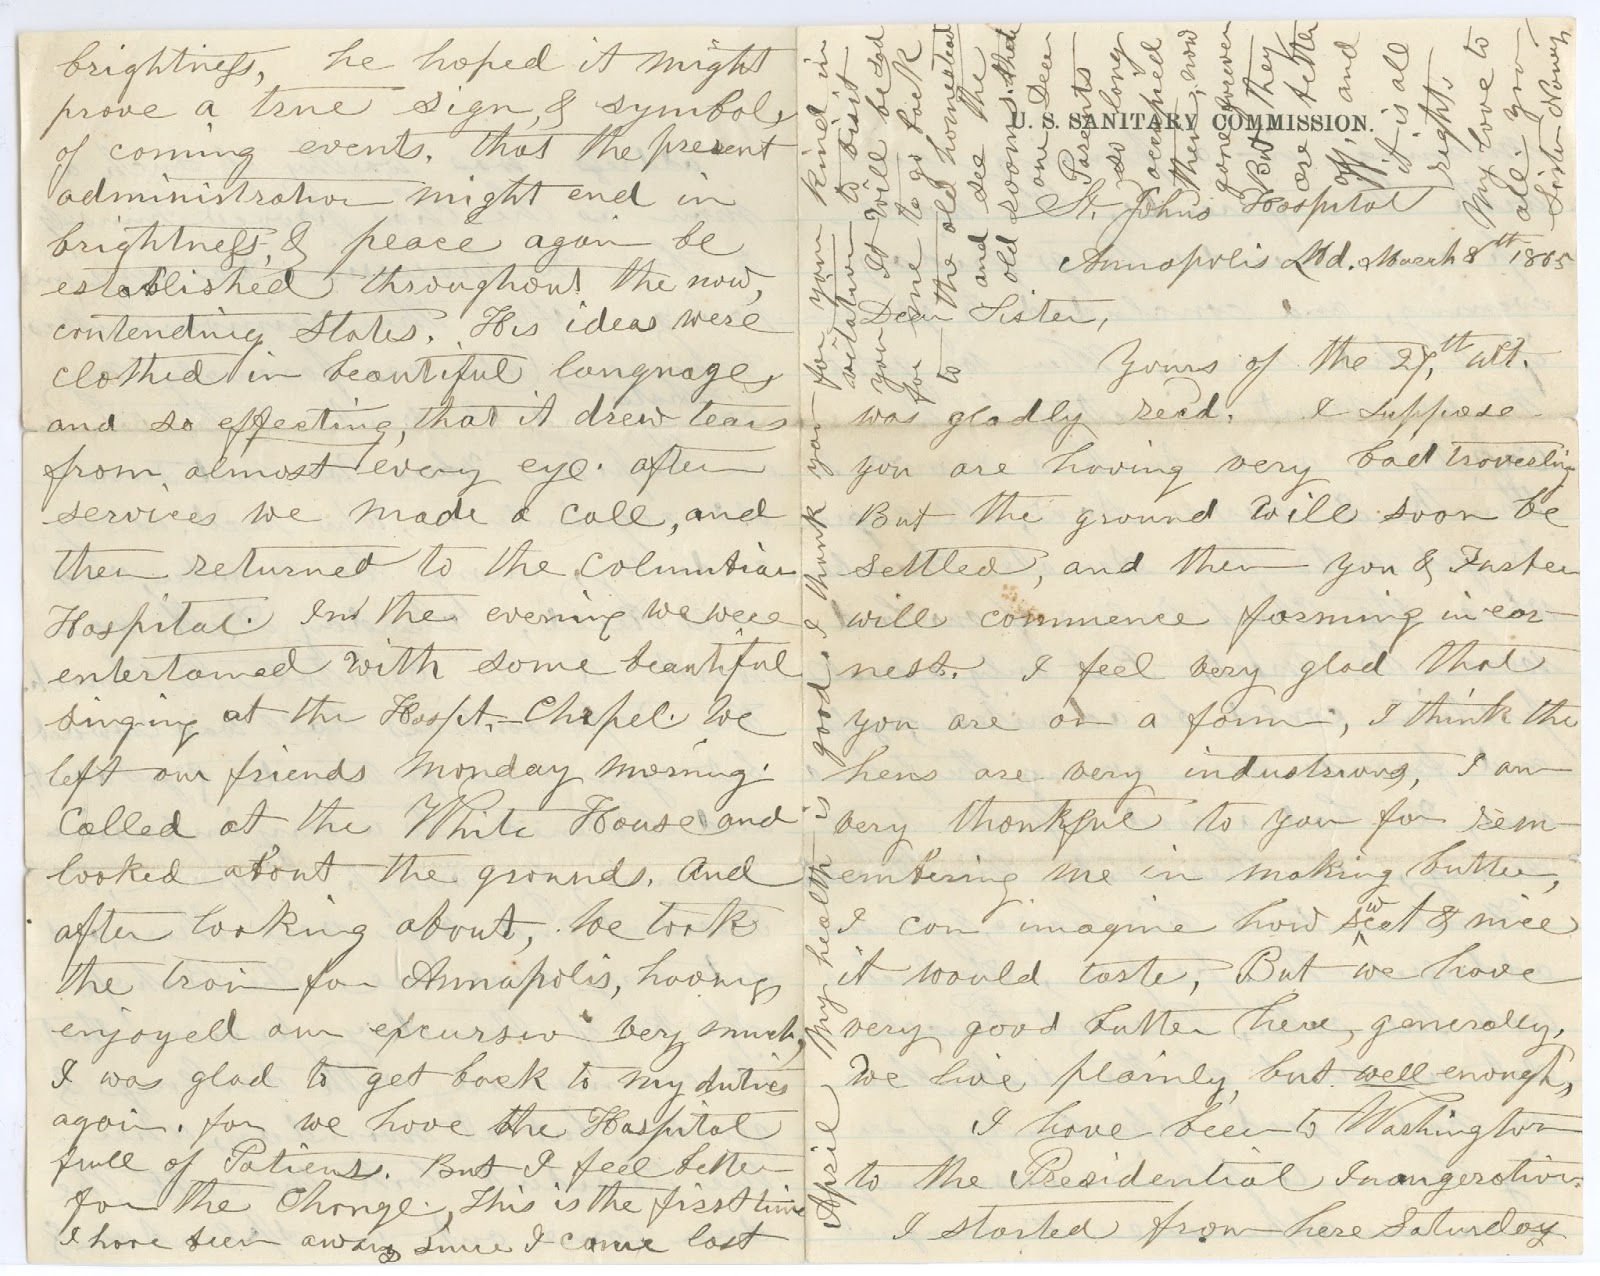 U. S. SANITARY COMMISSION.
St. Johns Hospital
Annapolis Md. March 8th 1865
Dear Sister,
Yours of the 27,th ult.
was gladly recd. I suppose
you are having very bad traveling
But the ground will soon be
settled, and then you & Foster
will commence farming in ear-
nest. I feel very glad that
you are on a farm, I think the
hens are very industrious, I am
very thankful to you for rem-
embering me in making butter,
I can imagine how sweet & nice
it would taste, But we have
very good butter here, generally.
We live plainly, but well enough,
I have been to Washington
to the Presidential Inaugeration.
I started from here Saturday
brightness, he hoped it might
prove a true sign, & symbol,
of coming events, that the present
administration might end in
brightness, & peace again be
established throughout the now,
contending States. His ideas were
clothed in beautiful language,
and so effecting, that it drew tears
from almost every eye. after
services we made a call, and
then returned to the Columbian
Hospital. In the evening we were
entertained with some beautiful
singing at the Hospt,- Chapel. We
left our friends Monday morning.
Called at the White House and
looked about the grounds. And
after looking about, we took
the train for Annapolis, having
enjoyed our excursion very much,
I was glad to get back to my duties
again. for we have the Hospital
full of Patiens. But I feel better
for the Change. This is the first time
I have been away since I came last
April. My health is good. I thank you for your kind in
vitation to visit
you It will be sad
for me to go back
to the old homestead
and see the
old rooms that
our Dear
Parents
so long
occupied
then, now
gone forever
But they
are better
off, and
it is all
right.
My love to
all. Your
Sister Nancy